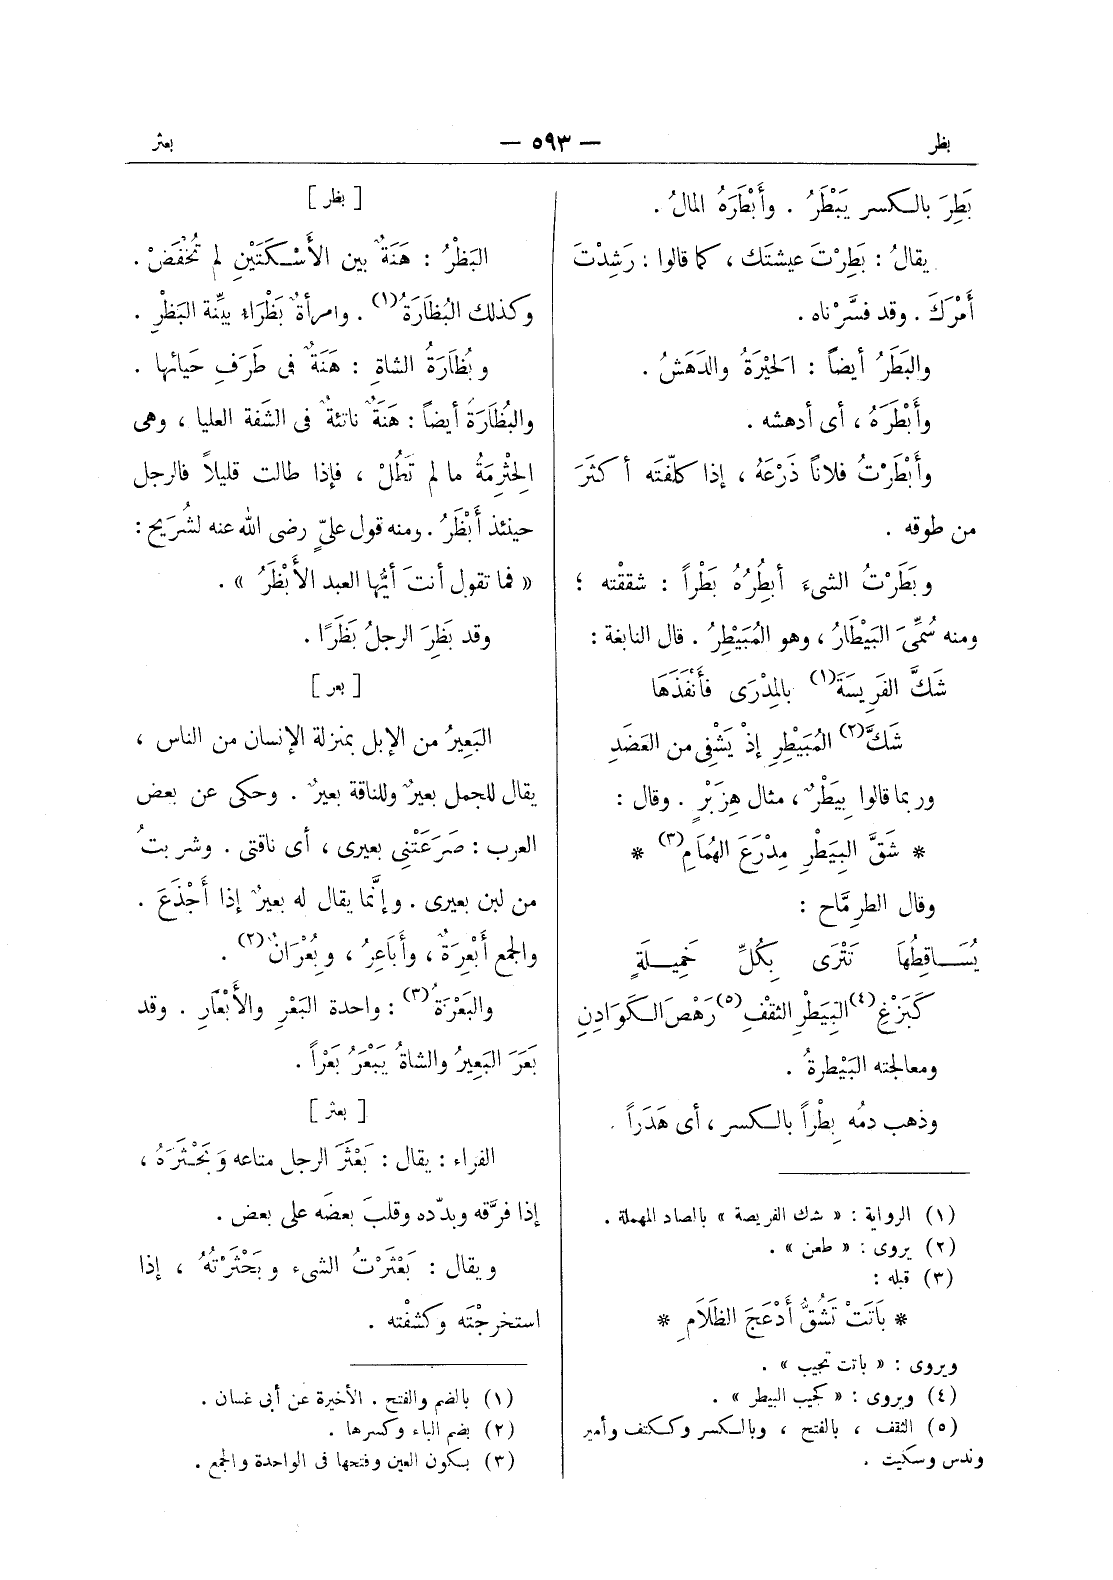 بظر — ٥٩٣ — بعثر
بَطِرَ بالكسر يَبْطَرُ . وأَبْطَرَهُ المالُ .
يقالُ : بَطِرْتَ عيشتَك ، كما قالوا : رَشِدْتَ
أَمْرَكَ . وقد فسَّرْناه .
والبَطَرُ أيضاً : الحَيْرَةُ والدَهَشُ .
وأَبْطَرَهُ ، أى أدهشه .
وأَبْطَرْتُ فلاناً ذَرْعَهُ ، إذا كلّفتَه أكثَرَ
من طوقه .
وبَطَرْتُ الشىءَ أبطُرُهُ بَطْراً : شققْته ؛
ومنه سُمِّىَ البَيْطَارُ ، وهو المُبَيْطِرُ . قال النابغة :
شَكَّ الفَرِيسَةَ(١) بالمِدْرَى فأَنْفَذَهَا
شَكَّ(٢) المُبَيْطِرِ إذْ يَشْفِى من العَضَدِ
وربما قالوا بِيَطْرٌ ، مثال هِزَبْرٍ . وقال :
* شَقَّ البِيَطْرِ مِدْرَعَ الهُمَامِ(٣) *
وقال الطرِمَّاح :
يُسَاقِطُهَا تَتْرَى بِكُلِّ خَمِيلَةٍ
كَبَزْغِ(٤) البِيَطْرِ الثقْفِ(٥) رَهْصَ الكَوَادِنِ
ومعالجته البَيْطرةُ .
وذهب دمُه بِطْراً بالكسر ، أى هَدَراً .
(١) الرواية : « شك الفريصة » بالصاد المهملة .
(٢) يروى : « طعن » .
(٣) قبله :
* بَاتَتْ تَشُقُّ أَدْعَجَ الظَلَامِ *
ويروى : « باتت تجيب » .
(٤) ويروى : « كجيب البيطر » .
(٥) الثقف ، بالفتح ، وبالكسر وككتف وأمير
وندس وسكيت .
[ بظر ]
البَظْرُ : هَنَةٌ بين الأَسْكَتَيْنِ لم تُخْفَضْ .
وكذلك البُظَارَةُ(١) . وامرأةٌ بَظْرَاء بيِّنة البَظْرِ .
وبُظَارَةُ الشاةِ : هَنَةٌ فى طَرَفِ حَيائها .
والبُظَارَةُ أيضاً : هَنَةٌ ناتئةٌ فى الشَفة العليا ، وهى
الحِثْرِمَةُ ما لم تَطُلْ ، فإذا طالت قليلاً فالرجل
حينئذ أَبْظَرُ . ومنه قول علىٍّ رضى الله عنه لشُرَيح :
« فما تقول أنتَ أيُّها العبد الأَبْظَرُ » .
وقد بَظِرَ الرجلُ بَظَرًا .
[ بعر ]
البَعِيرُ من الإبل بمنزلة الإنسان من الناس ،
يقال للجمل بعيرٌ وللناقة بعيرٌ . وحكى عن بعض
العرب : صَرَعَتْنِى بعيرى ، أى ناقتى . وشربتُ
من لبن بعيرى . وإنَّما يقال له بعيرٌ إذا أَجْذَعَ .
والجمع أَبْعِرَةٌ ، وأَبَاعِرُ ، وبُعْرَانٌ(٢) .
والبَعْرَةُ(٣) : واحدة البَعْرِ والأَبْعَارِ . وقد
بَعَرَ البَعِيرُ والشاةُ يَبْعَرُ بَعْراً .
[ بعثر ]
الفراء : يقال : بَعْثَرَ الرجل متاعه وبَحْثَرَهُ ،
إذا فرَّقه وبدّده وقلبَ بعضَه على بعض .
ويقال : بَعْثَرْتُ الشىء وبَحْثَرْتُهُ ، إذا
استخرجْتَه وكشفْته .
(١) بالضم والفتح . الأخيرة عن أبى غسان .
(٢) بضم الباء وكسرها .
(٣) بسكون العين وفتحها فى الواحدة والجمع .